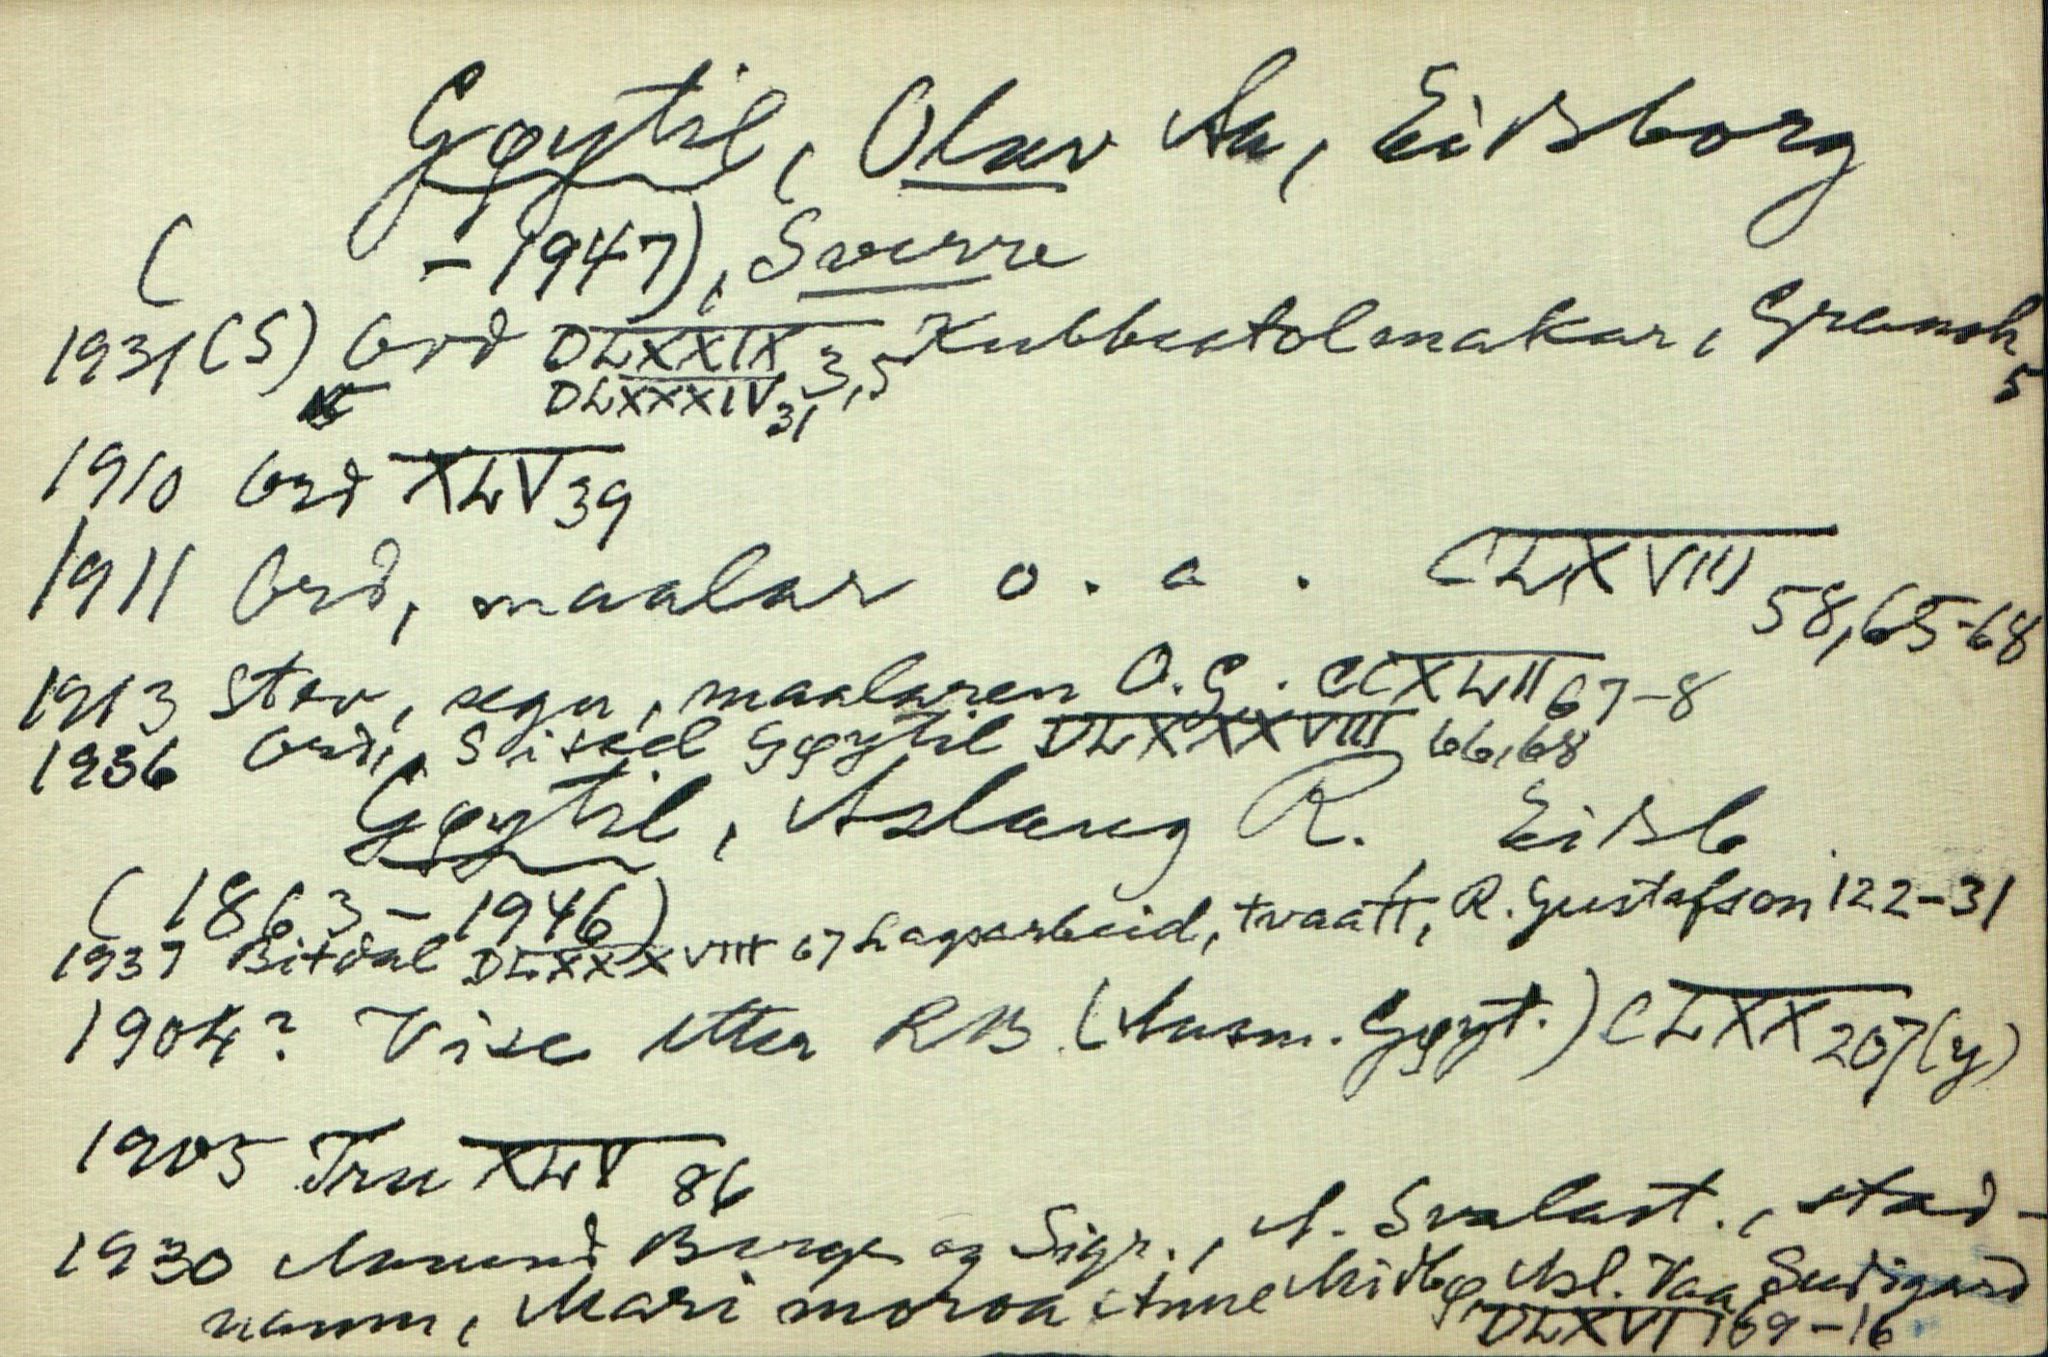 Gøytil, Olav Aa, Eidsborg
( - 1947), Sverre
1931 (S) Ord DLXXIX 3,5 Kubbestolmakar, Gramsh 5
DLXXXIV 31
1910 Ord XLV 39
1911 Ord, maalar o. a. CLXVIII 58, 65-68
1913 Stev, segn, maalaren O. G. CCXLII 67-8
1936 Ord, Sissel Gøytil DLXXXVIII 66,68
Gøytil, Aslaug R. Eidsb
(1863 - 1946)
1937 Bitdal DLXXXVIII 67 Lagsarbeid, tvaatt, R. Gustafson 122-31
1904? Vise etter RB (Aasm. Gøyt.) CLXX 207(y)
1905 Tru XLV 86
1930 Aamund Borge og Sigr., A. Svalast., stad-
namn, Mari moroa Anne Midbø, Asl. Vaa Sudigard
DLXVI 169-16